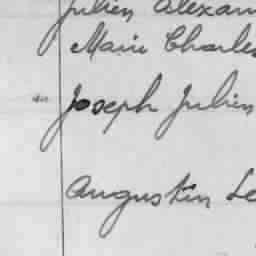 Julien Alexan
Marie Charles
Joseph Julien
Augustin Le